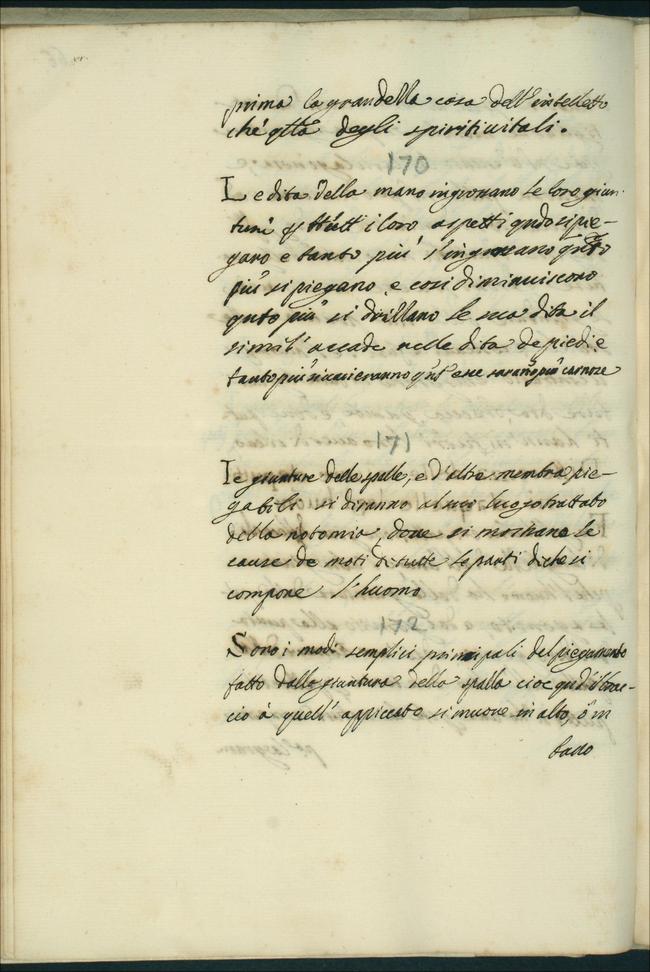 prima la gran della casa dell'intelletto
ché q̃lla degli spiriti uitali.
170
Le dita della mano ingrossano le loro giun-
ture p tutti i loro aspetti q̃do si pie-
gano e tanto più s'ingrossano q̃to
più si piegano e cosi diminuiscono
quto più si drizzano le sua dita il
simil' accade nelle dita de piedi e
tanto più si uarieranno q̃to esse saranno più carnose
171
Le giunture delle spalle, e d'altre membra pie-
gabili si diranno al suo luogo trattato
della notomia, doue si mostrano le
cause de moti di tutte le parti di che si
compone l'huomo
172
Sono i modi semplici principali del piegamento
fatto dalla giuntura della spalla cioè qñd' il brac-
cio à quell' appiccato si muoue in alto, ò in
basso